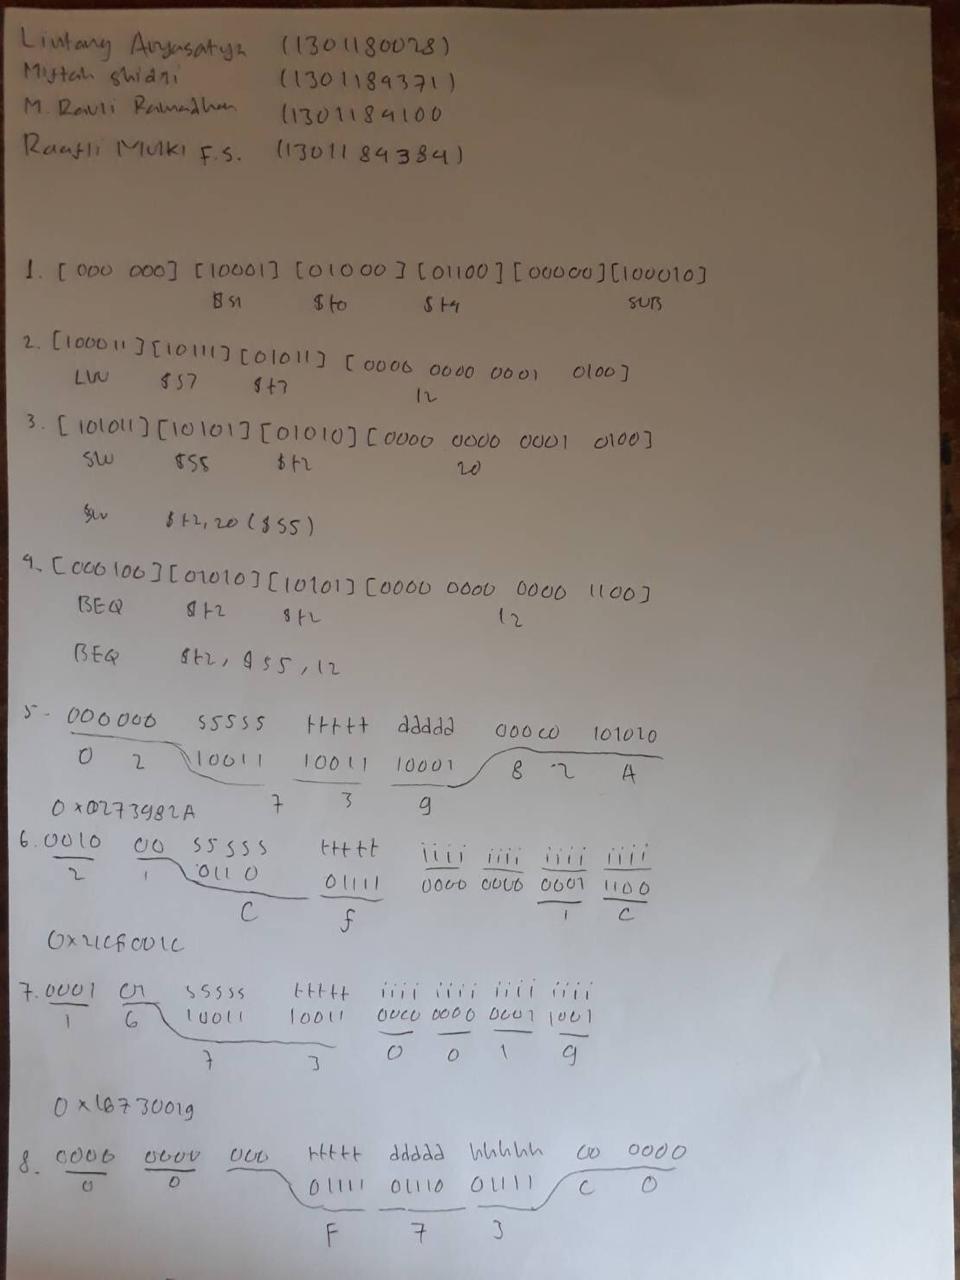 Lintang Aryasatya (1301180028)
Miftah Shidqi (1301189371)
M. Ravli Ramadhan (1301184100
Raafli Mulki F.S. (1301184384)
1. [000 000] [10001] [01000] [01100] [00000] [100010]
$s1 $t0 $t4 SUB
2. [100011] [10111] [01011] [0000 0000 0001 0100]
LW $S7 $t3 12
3. [101011] [10101] [01010] [0000 0000 0001 0100]
SW $S5 $t2 20
SW $t2, 20 ($S5)
4. [000100] [01010] [10101] [0000 0000 0000 1100]
BEQ $t2 $t2 12
BEQ $t2, $S5, 12
5. 000000 sssss ttttt ddddd 00000 101010
10011 10011 10001
0 2 7 3 9 8 2 A
0x0273982A
6. 0010 00 sssss ttttt iiii iiii iiii iiii
0110 01111 0000 0000 0001 1100
2 1 C f 1 C
0x21Cf001C
7. 0001 01 sssss ttttt iiii iiii iiii iiii
10011 10011 0000 0000 0001 1001
1 6 7 3 0 0 1 9
0x16730019
8. 0000 0000 000 ttttt ddddd hhhhh 00 0000
01111 01110 01111
0 0 F 7 3 C 0